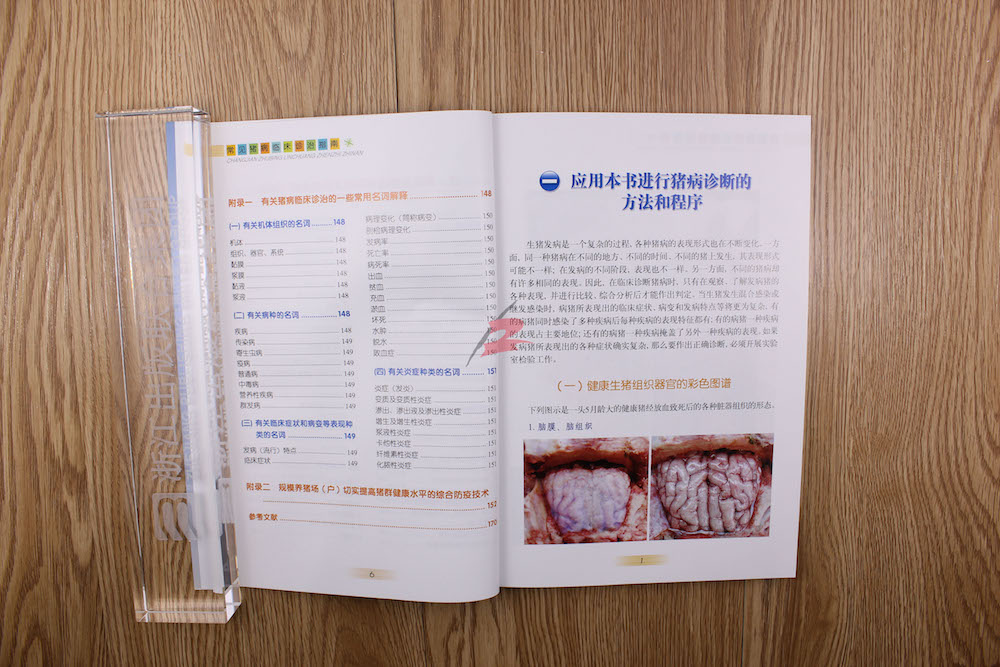 常见猪病临床诊治指南
CHANGJIAN ZHUBING LINCHUANG ZHENZHI ZHINAN
附录一 有关猪病临床诊治的一些常用名词解释 148
(一) 有关机体组织的名词 148
机体 148
组织、器官、系统 148
黏膜 148
浆膜 148
黏液 148
浆液 148
(二) 有关病种的名词 148
疾病 148
传染病 149
寄生虫病 149
疫病 149
普通病 149
中毒病 149
营养性疾病 149
群发病 149
(三) 有关临床症状和病变等表现种
类的名词 149
发病(流行)特点 149
临床症状 149
病理变化(简称病变) 150
剖检病理变化 150
发病率 150
死亡率 150
病死率 150
出血 150
贫血 150
充血 150
淤血 150
坏死 150
水肿 150
脱水 150
败血症 150
(四) 有关炎症种类的名词 151
炎症(发炎) 151
变质及变质性炎症 151
渗出、渗出液及渗出性炎症 151
增生及增生性炎症 151
浆液性炎症 151
卡他性炎症 151
纤维素性炎症 151
化脓性炎症 151
附录二 规模养猪场(户)切实提高猪群健康水平的综合防疫技术
152
参考文献 170
6
一 应用本书进行猪病诊断的
方法和程序
生猪发病是一个复杂的过程,各种猪病的表现形式也在不断变化。一方
面,同一种猪病在不同的地方、不同的时间、不同的猪上发生,其表现形式
可能不一样;在发病的不同阶段,表现也不一样。另一方面,不同的猪病却
有许多相同的表现。因此,在临床诊断猪病时,只有在观察、了解发病猪的
各种表现,并进行比较、综合分析后才能作出判定。当生猪发生混合感染或
继发感染时,病猪所表现出的临床症状、病变和发病特点等将更为复杂,有
的病猪同时感染了多种疾病后每种疾病的表现特征都有;有的病猪一种疾病
的表现占主要地位;还有的病猪一种疾病掩盖了另外一种疾病的表现。如果
发病猪所表现出的各种症状确实复杂,那么要作出正确诊断,必须开展实验
室检验工作。
(一)健康生猪组织器官的彩色图谱
下列图示是一头5月龄大的健康猪经放血致死后的各种脏器组织的形态。
1. 脑膜、脑组织
1